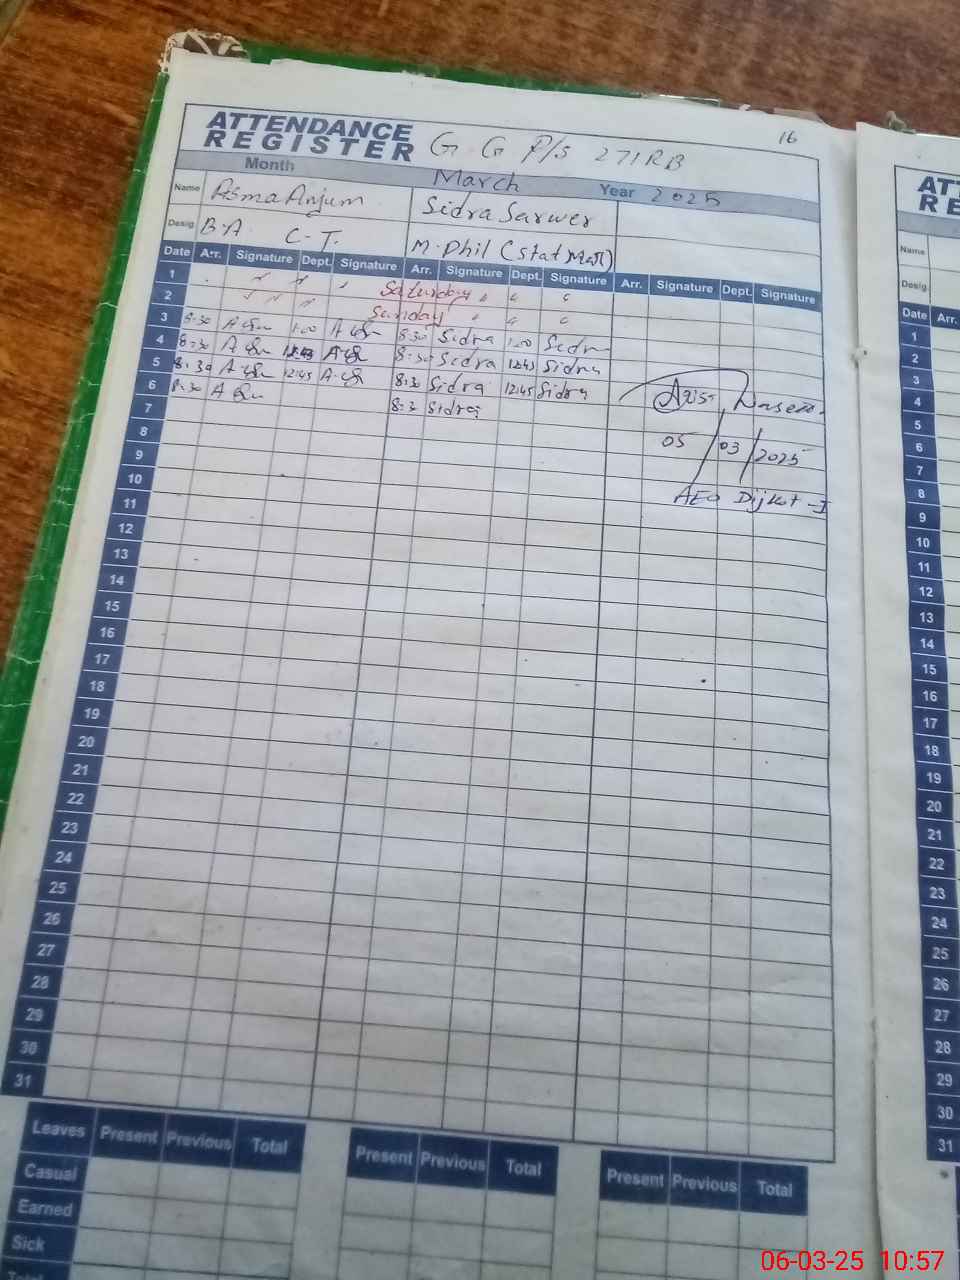 16
ATTENDANCE REGISTER G G P/S 271RB
Month March Year 2025
Name Asma Anjum Sidra Sarwer
Desig B.A C-T. M.Phil (Stat Math)
Date Arr. Signature Dept. Signature Arr. Signature Dept. Signature Arr. Signature Dept. Signature
1 Saturday
2 Sunday
3 8:30 1:00 8:30 Sidra 1:00 Sidra
4 8:30 12:45 8:30 Sidra 12:45 Sidra
5 8:30 12:45 8:30 Sidra 12:45 Sidra
6 8:30 8:30 Sidra
7
8 05/03/2025
9
10 AEO Dijkot-I
11
12
13
14
15
16
17
18
19
20
21
22
23
24
25
26
27
28
29
30
31
Leaves Present Previous Total Present Previous Total Present Previous Total
Casual
Earned
Sick
Total
Name
Desig
Date Arr.
1
2
3
4
5
6
7
8
9
10
11
12
13
14
15
16
17
18
19
20
21
22
23
24
25
26
27
28
29
30
31
06-03-25 10:57